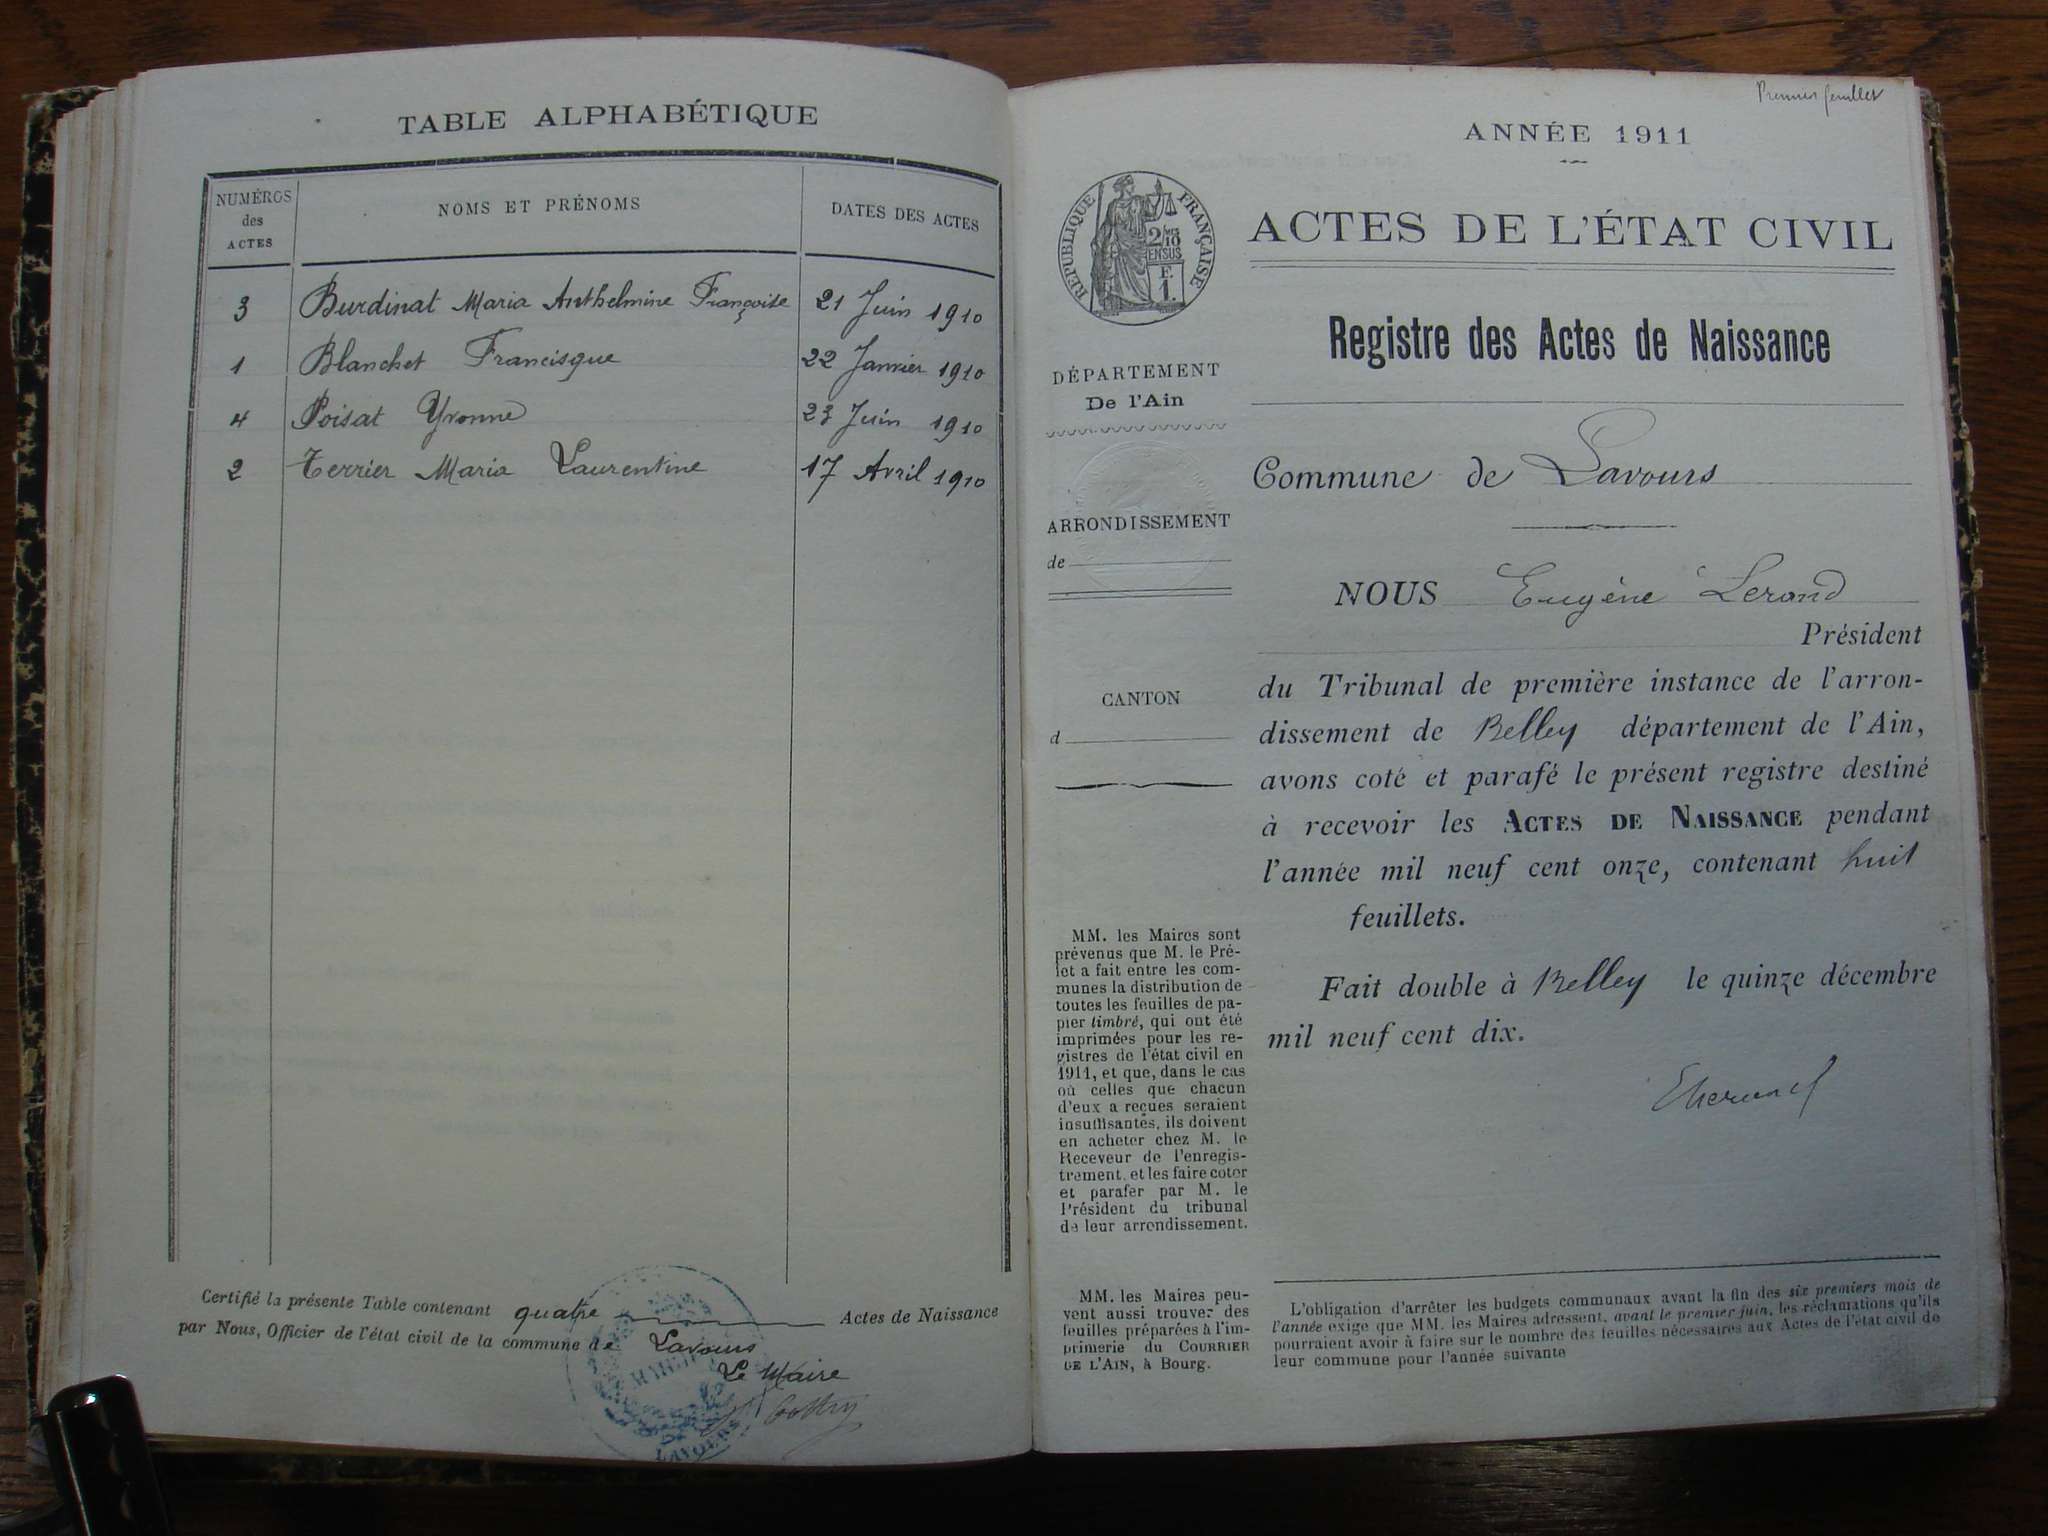 TABLE ALPHABÉTIQUE
NUMÉROS des ACTES
NOMS ET PRÉNOMS
DATES DES ACTES
3 Burdinat Maria Anthelmine Françoise 21 Juin 1910
1 Blanchet Francisque 22 Janvier 1910
4 Poisat Yvonne 23 Juin 1910
2 Terrier Maria Laurentine 17 Avril 1910
Certifié la présente Table contenant quatre Actes de Naissance
par Nous, Officier de l'état civil de la commune de Lavours
Le Maire
Premier feuillet
ANNÉE 1911
RÉPUBLIQUE FRANÇAISE
2/10
EN SUS
F.
1.
ACTES DE L'ÉTAT CIVIL
Registre des Actes de Naissance
DÉPARTEMENT
De l'Ain
ARRONDISSEMENT
de
CANTON
d
MM. les Maires sont
prévenus que M. le Pré-
fet a fait entre les com-
munes la distribution de
toutes les feuilles de pa-
pier timbré, qui ont été
imprimées pour les re-
gistres de l'état civil en
1911, et que, dans le cas
où celles que chacun
d'eux a reçues seraient
insuffisantes, ils doivent
en acheter chez M. le
Receveur de l'enregis-
trement, et les faire coter
et parafer par M. le
Président du tribunal
de leur arrondissement.
MM. les Maires peu-
vent aussi trouver des
feuilles préparées à l'im-
primerie du COURRIER
DE L'AIN, à Bourg.
Commune de Lavours
NOUS Eugène
Président
du Tribunal de première instance de l'arron-
dissement de Belley département de l'Ain,
avons coté et parafé le présent registre destiné
à recevoir les ACTES DE NAISSANCE pendant
l'année mil neuf cent onze, contenant huit
feuillets.
Fait double à Belley le quinze décembre
mil neuf cent dix.
L'obligation d'arrêter les budgets communaux avant la fin des six premiers mois de
l'année exige que MM. les Maires adressent, avant le premier juin, les réclamations qu'ils
pourraient avoir à faire sur le nombre des feuilles nécessaires aux Actes de l'état civil de
leur commune pour l'année suivante